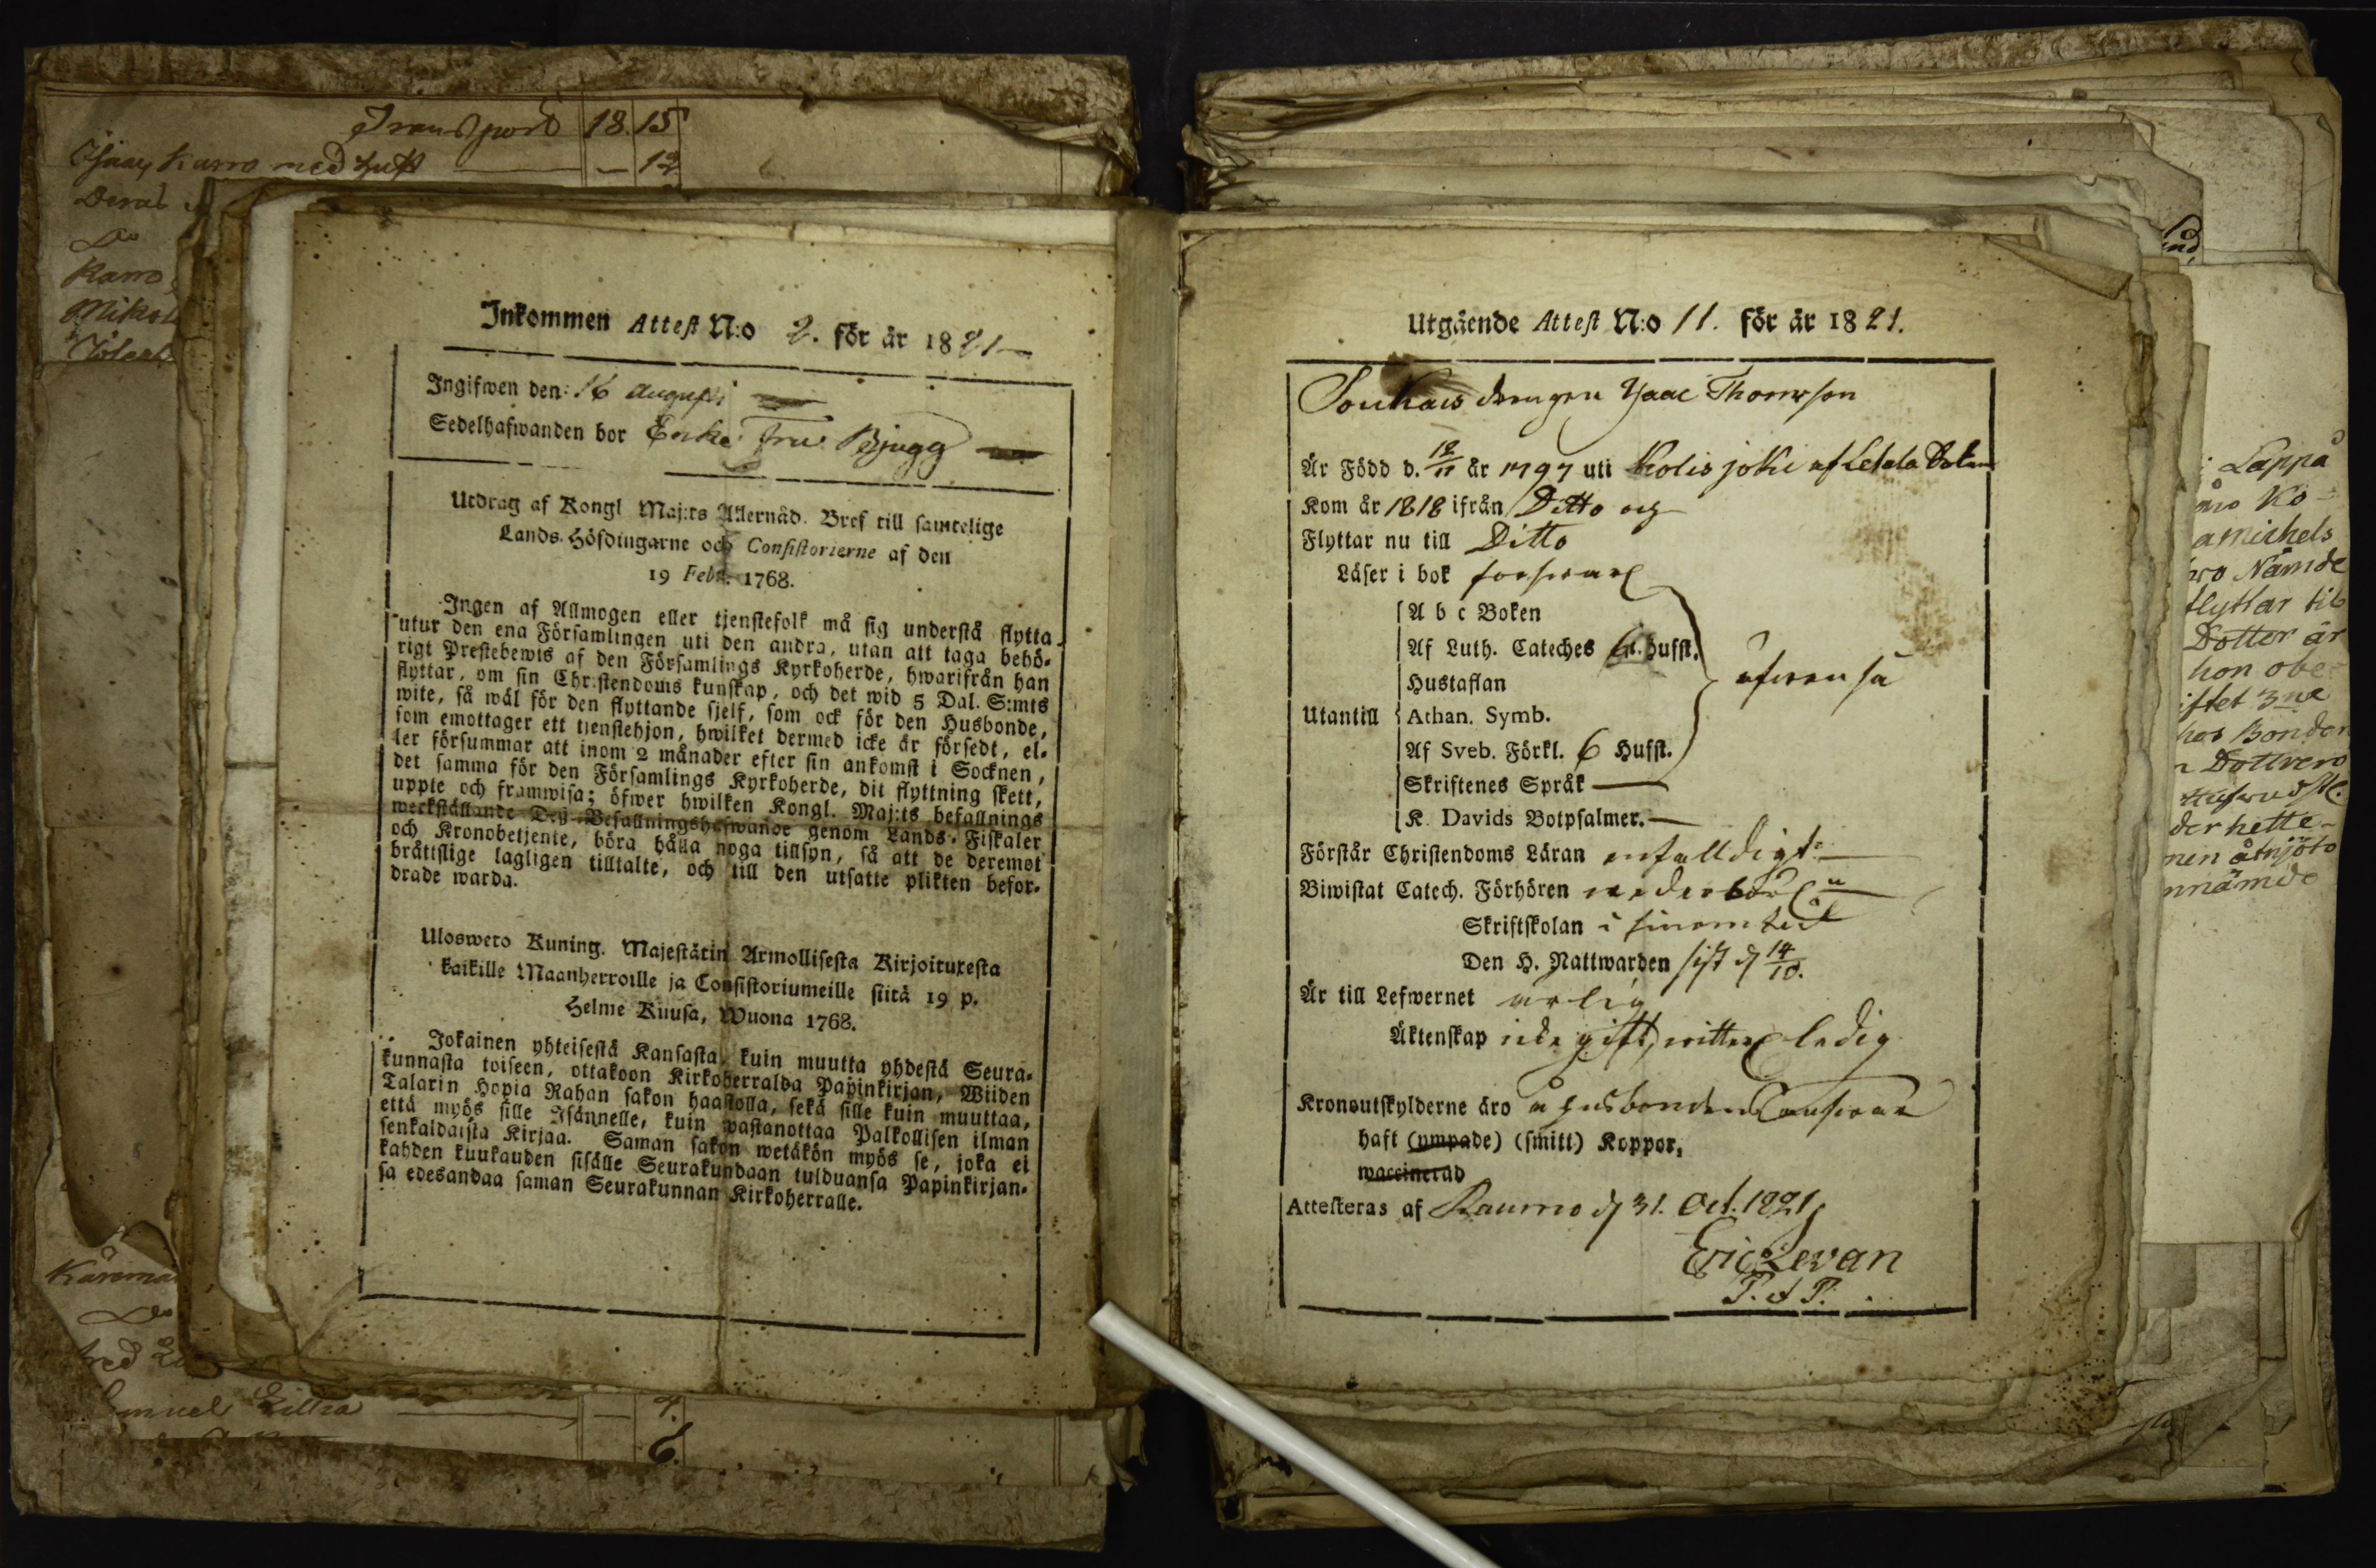 Transport 18. 15
med hust — 12
Karro
Inkommen Attest N:o 2. för år 1821
Ingifwen den: 16 augusti
Sedelhafwanden bor Enke Fru Bjugg
Utdrag af Kongl Maj:ts Allernåd. Bref till samtelige
Lands-Höfdingarne och Consistorierne af den
19 Febr. 1768.
Ingen af Allmogen eller tjenstefolk må sig understå flytta
utur den ena Församlingen uti den andra, utan att taga behö-
rigt Prestebewis af den Församlings Kyrkoherde, hwarifrån han
flyttar, om sin Christendoms kunskap, och det wid 5 Dal. S:mts
wite, så wäl för den flyttande sjelf, som ock för den Husbonde,
som emottager ett tjenstehjon, hwilket dermed icke är försedt, el-
ler försummar att inom 2 månader efter sin ankomst i Socknen,
det samma för den Församlings Kyrkoherde, dit flyttning skett,
uppte och framwisa; öfwer hwilken Kongl. Maj:ts befallnings
werkställande Deß Befallningshafwande genom Lands-Fiskaler
och Kronobetjente, böra hålla noga tillsyn, så att de deremot
bråttslige lagligen tilltalte, och till den utsatte plikten befor-
drade warda.
Ulosweto Kuning. Majestätin Armollisesta Kirjoituxesta
kaikille Maanherroille ja Consistoriumeille siitä 19 p.
Helme Kuusa, Wuona 1768.
Jokainen yhteisestä Kansasta, kuin muutta yhdestä Seura-
kunnasta toiseen, ottakoon Kirkoherralda Papinkirjan, Wiiden
Talarin Hopia Rahan sakon haastolla, sekä sille kuin muuttaa,
että myös sille Isännelle, kuin wastanottaa Palkollisen ilman
senkaldaista Kirjaa. Saman sakon wetäkön myös se, joka ei
kahden kuukauden sisälle Seurakundaan tulduansa Papinkirjan-
sa edesandaa saman Seurakunnan Kirkoherralle.
Samuel
6.
Utgående Attest N:o 11. för år 1821.
Soukais drengen Isaac Thomsson
År Född d. 12/11 år 1797 uti Kolisjoki af Letala Sokn
Kom år 1818 ifrån Ditto och
Flyttar nu till Ditto
Läser i bok forswarl
A b c Boken
Af Luth. Cateches 6. Hufst.
Hustaflan
äfwen så
Utantill Athan. Symb.
Af Sveb. Förkl. 6 Hufst.
Skriftenes Språk —
K. Davids Botpsalmer. —
Förstår Christendoms Läran enfalldigt —
Biwistat Catech. Förhören wederbörl
Skriftskolan i sinom tid
Den H. Nattwarden sist d 14/10.
Är till Lefwernet ärlig
Äktenskap icke gift, witterl ledig
Kronoutskylderne äro å husbondens answar
haft (ympade) (smitt) Koppor,
waccinerad
Attesteras af Raumo d 31. Oct. 1821
Eric Levan
P. & P.
Lappå
Ko-
amichels
Nämde
flyttar til
Dotter är
hon obe-
iftet 3ne
hos Bonden
der hette
nen åtnjöto
nnämde